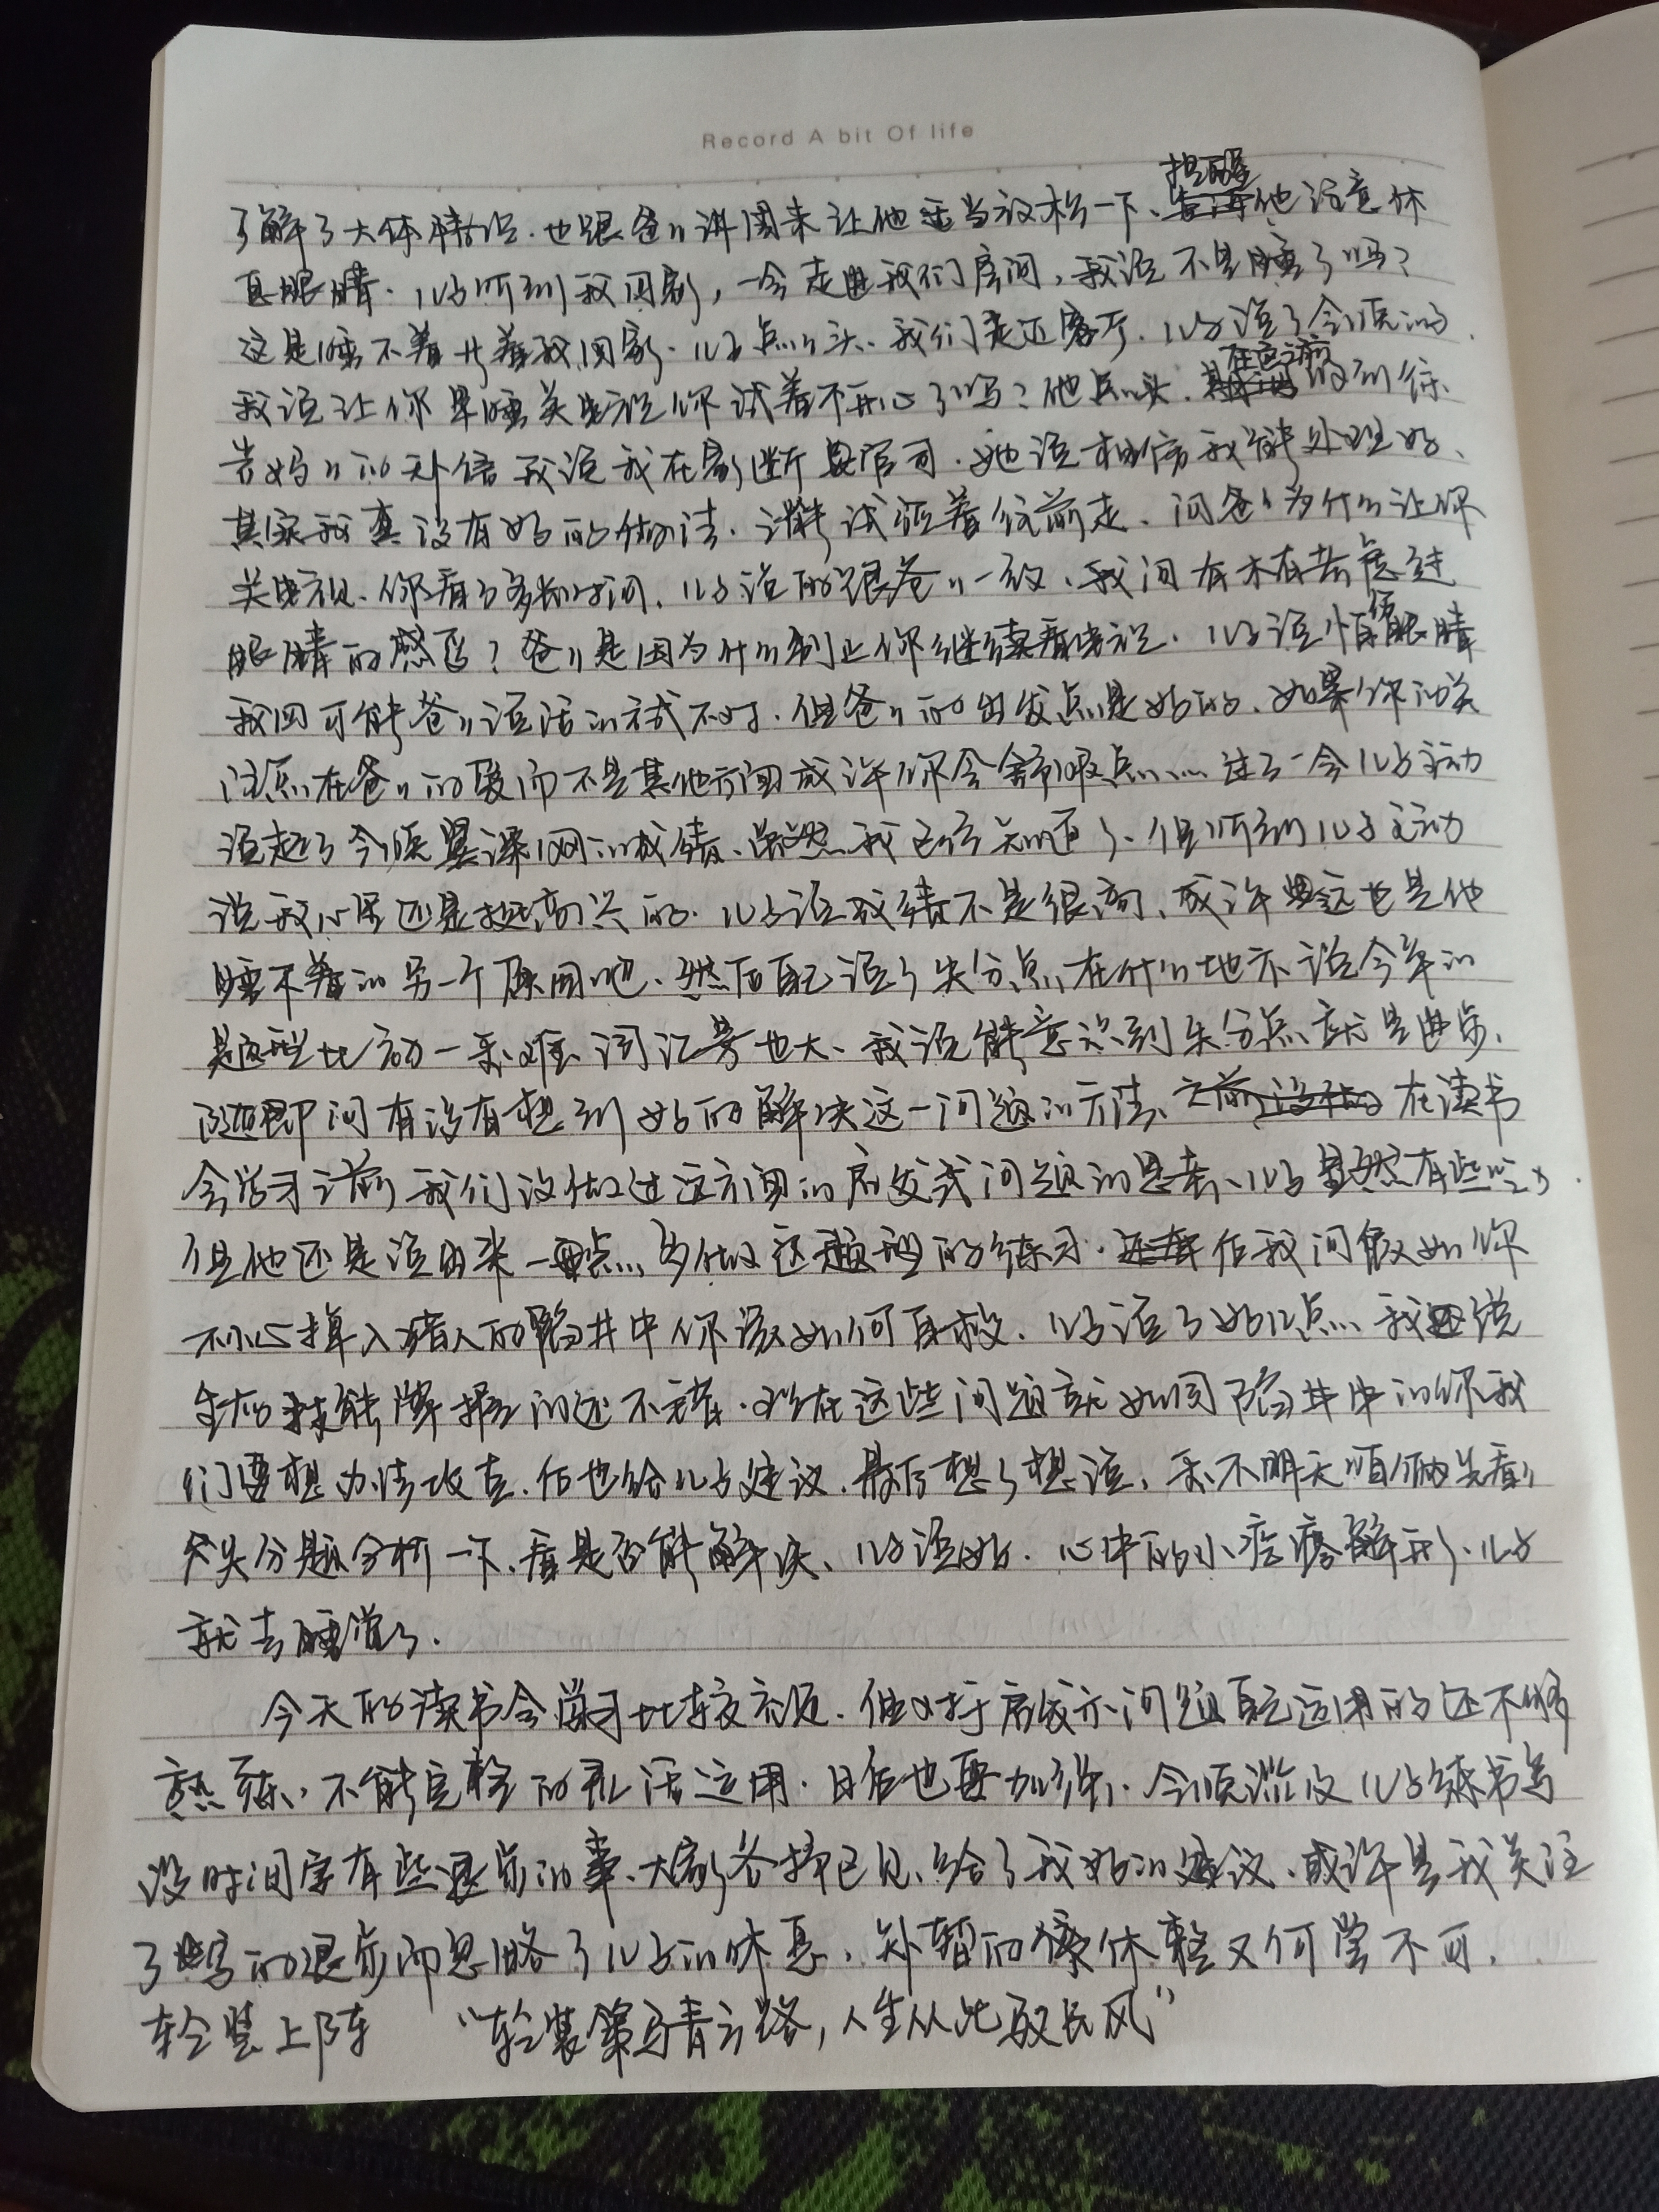 Record A bit Of life
了解了大体情况.也跟爸〃讲周末让他适当放松一下、提醒他注意休
息眼睛.儿子听到我回家,一会走进我们房间,我说不是睡了吗?
这是睡不着等着我回家.儿子点〃头、我们走近客厅.儿子说了今晚的
我说让你早睡关电视你试着不开心了吗?他点〃头.在店之前收到徐
老妈〃的短信我说我在家断官司.她说相信我能处理好、
其实我真没有好的做法.只能试验着往前走.问爸〃为什么让你
关电视、你看了多长时间、儿子说的跟爸〃一致、我问有木有考虑过
眼睛的感受?爸〃是因为什么制止你继续看电视.儿子说怕累眼睛
我回可能爸〃说话方式不对.但爸〃的出发点是好的、如果你的关
注点在爸〃的爱而不是其他方面或许你会舒服点……过了一会儿子主动
说起了今晚翼课网的成绩、虽然我已经知道了、但听到儿子主动
说我心里还是挺高兴的.儿子说成绩不是很高、或许这也是他
睡不着的另一个原因吧、然后自己说了失分点在什么地方说今年的
题型比六年难、词汇量也大、我说能意识到失分点就是进步、
随即问有没有想到好的解决这一问题的方法、在读书
会学习之前我们没做过这方面的启发式问题的思考、儿子显然有些吃力.
但他还是说出来一点、多做这题型的练习.后我问假如你
不小心掉入猎人的陷井中你该如何自救.儿子说了好几点 我说
生存技能掌握的还不错.现在这些问题就如同陷井中的你我
们要想办法攻克.后也给儿子建议.最后想了想说、要不明天咱俩先看〃
失分题分析一下、看是否能解决、儿子说好.心中的小疙瘩解开、儿子
就去睡觉了.
今天的读书会学习比较充足.但对于启发示问题自己运用的还不够
熟练、不能完整的灵活运用.日后也要加强、今晚谈及儿子练书写
没时间字有些退步的事、大家各抒己见、给了我好的建议、或许是我关注
了书写的退步而忽略了儿子的休息、短暂的停休整又何尝不可.
轻装上阵 “轻装策马青云路,人生从此驭长风”